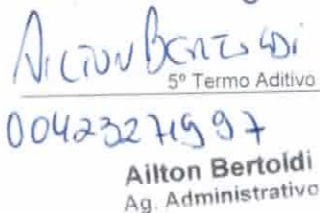 Ailton Bertoldi
5º Termo Aditivo
00423271997
Ailton Bertoldi
Ag. Administrativo